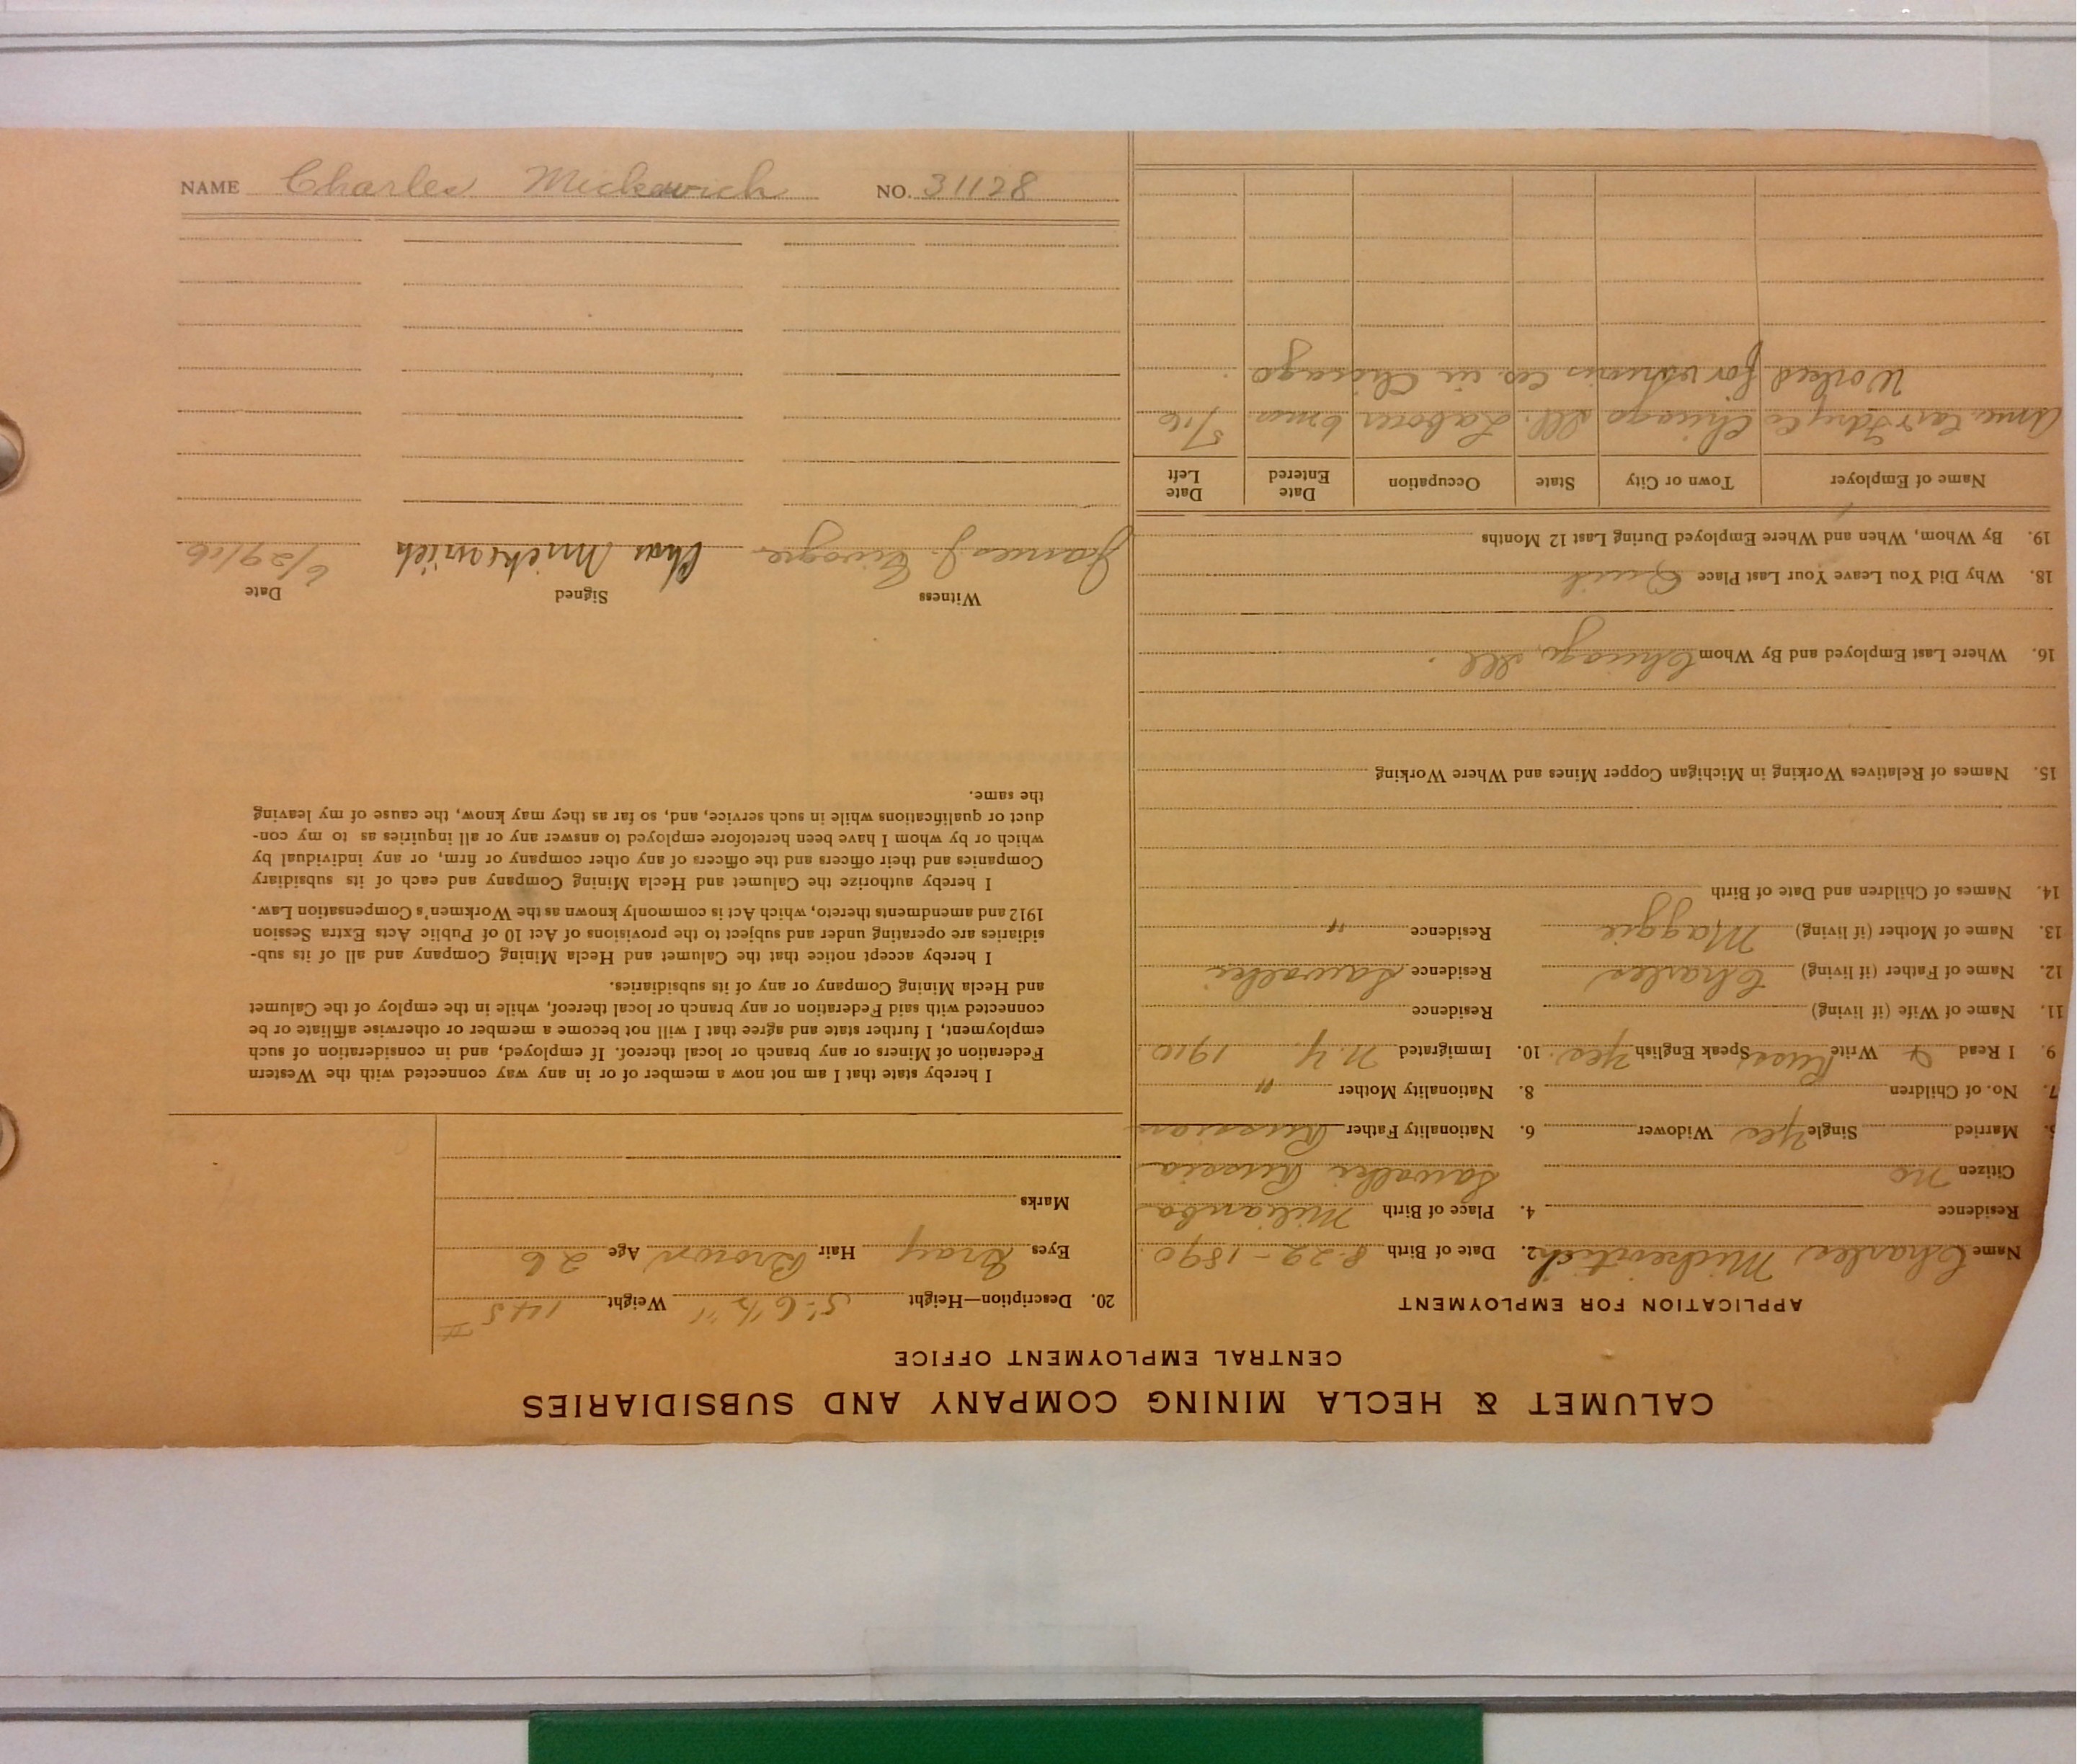 CALUMET & HECLA MINING COMPANY AND SUBSIDIARIES
CENTRAL EMPLOYMENT OFFICE
APPLICATION FOR EMPLOYMENT
Name Charles Mickevitich 2. Date of Birth 8-29-1890
Residence 4. Place of Birth
Citizen no Suwalki Russia
Married Single Yes Widower 6. Nationality Father Russian
7. No. of Children 8. Nationality Mother "
9. I Read & Write Russ Speak English Yes. 10. Immigrated N.Y. 1910
11. Name of Wife (if living) Residence
12. Name of Father (if living) Charles Residence Suwalki
13. Name of Mother (if living) Maggie Residence "
14. Names of Children and Date of Birth
15. Names of Relatives Working in Michigan Copper Mines and Where Working
16. Where Last Employed and By Whom Chicago, Ill.
18. Why Did You Leave Your Last Place Quit
19. By Whom, When and Where Employed During Last 12 Months
Name of Employer Town or City State Occupation Date Entered Date Left
Amer. Car & Fdry Co Chicago Ill. Laborer 6 mos 5/16
Worked for various cos. in Chicago
20. Description—Height 5' 6½" Weight 145
Eyes Gray Hair Brown Age 26
Marks
I hereby state that I am not now a member of or in any way connected with the Western
Federation of Miners or any branch or local thereof. If employed, and in consideration of such
employment, I further state and agree that I will not become a member or otherwise affiliate or be
connected with said Federation or any branch or local thereof, while in the employ of the Calumet
and Hecla Mining Company or any of its subsidiaries.
I hereby accept notice that the Calumet and Hecla Mining Company and all of its sub-
sidiaries are operating under and subject to the provisions of Act 10 of Public Acts Extra Session
1912 and amendments thereto, which Act is commonly known as the Workmen's Compensation Law.
I hereby authorize the Calumet and Hecla Mining Company and each of its subsidiary
Companies and their officers and the officers of any other company or firm, or any individual by
which or by whom I have been heretofore employed to answer any or all inquiries as to my con-
duct or qualifications while in such service, and, so far as they may know, the cause of my leaving
the same.
Witness Signed Date
James J. Chas Mickewich 6/29/16
NAME Charles Mickewich NO. 31128